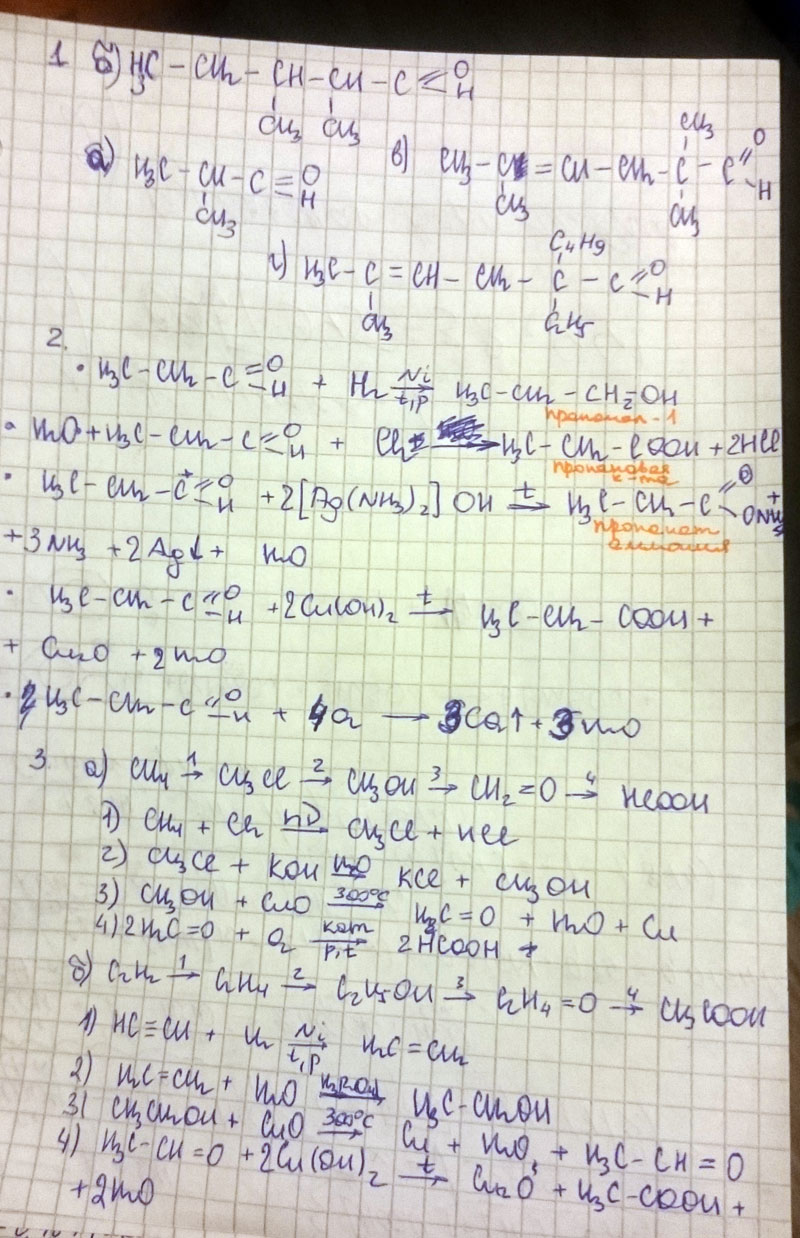 1 б) H₃C – CH₂ – CH – CH – C =O –H
CH₃ CH₃
а) H₃C – CH – C =O –H
CH₃
в) CH₃ – C = CH – CH₂ – C – C =O –H
CH₃ CH₃ CH₃
г) H₃C – C = CH – CH₂ – C – C =O –H
CH₃ C₄H₉ C₂H₅
2.
· H₃C – CH₂ – C =O –H + H₂ Ni t,p → H₃C – CH₂ – CH₂ – OH
пропанол-1
· H₂O + H₃C – CH₂ – C =O –H + Cl₂ → H₃C – CH₂ – COOH + 2HCl
пропановая к-та
· H₃C – CH₂ – C⁺ =O –H + 2[Ag(NH₃)₂]OH t → H₃C – CH₂ – C =O ONH₄ +
пропанат аммония
+ 3NH₃ + 2Ag↓ + H₂O
· H₃C – CH₂ – C =O –H + 2Cu(OH)₂ t → H₃C – CH₂ – COOH +
+ Cu₂O + 2H₂O
· H₃C – CH₂ – C =O –H + 4O₂ → 3CO₂↑ + 3H₂O
3. а) CH₄ 1→ CH₃Cl 2→ CH₃OH 3→ CH₂=O 4→ HCOOH
1) CH₄ + Cl₂ hν → CH₃Cl + HCl
2) CH₃Cl + KOH H₂O → KCl + CH₃OH
3) CH₃OH + CuO 300°C → H₂C=O + H₂O + Cu
4) 2H₂C=O + O₂ кат p,t → 2HCOOH +
б) C₂H₂ 1→ C₂H₄ 2→ C₂H₅OH 3→ C₂H₄=O 4→ CH₃COOH
1) HC≡CH + H₂ Ni t,p → H₂C=CH₂
2) H₂C=CH₂ + H₂O H₃PO₄ → H₃C–CH₂OH
3) CH₃CH₂OH + CuO 300°C → Cu + H₂O + H₃C–CH=O
4) H₃C–CH=O + 2Cu(OH)₂ t → Cu₂O + H₃C–COOH +
+ 2H₂O